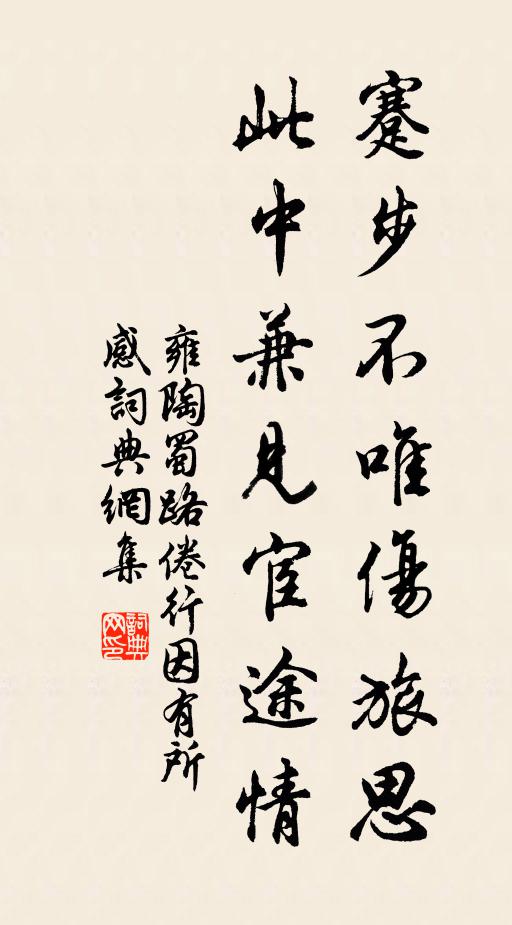 蹇步不唯傷旅思
此中兼見宦途情
雍陶蜀路倦行因有所
感詞典網集
詞典网印